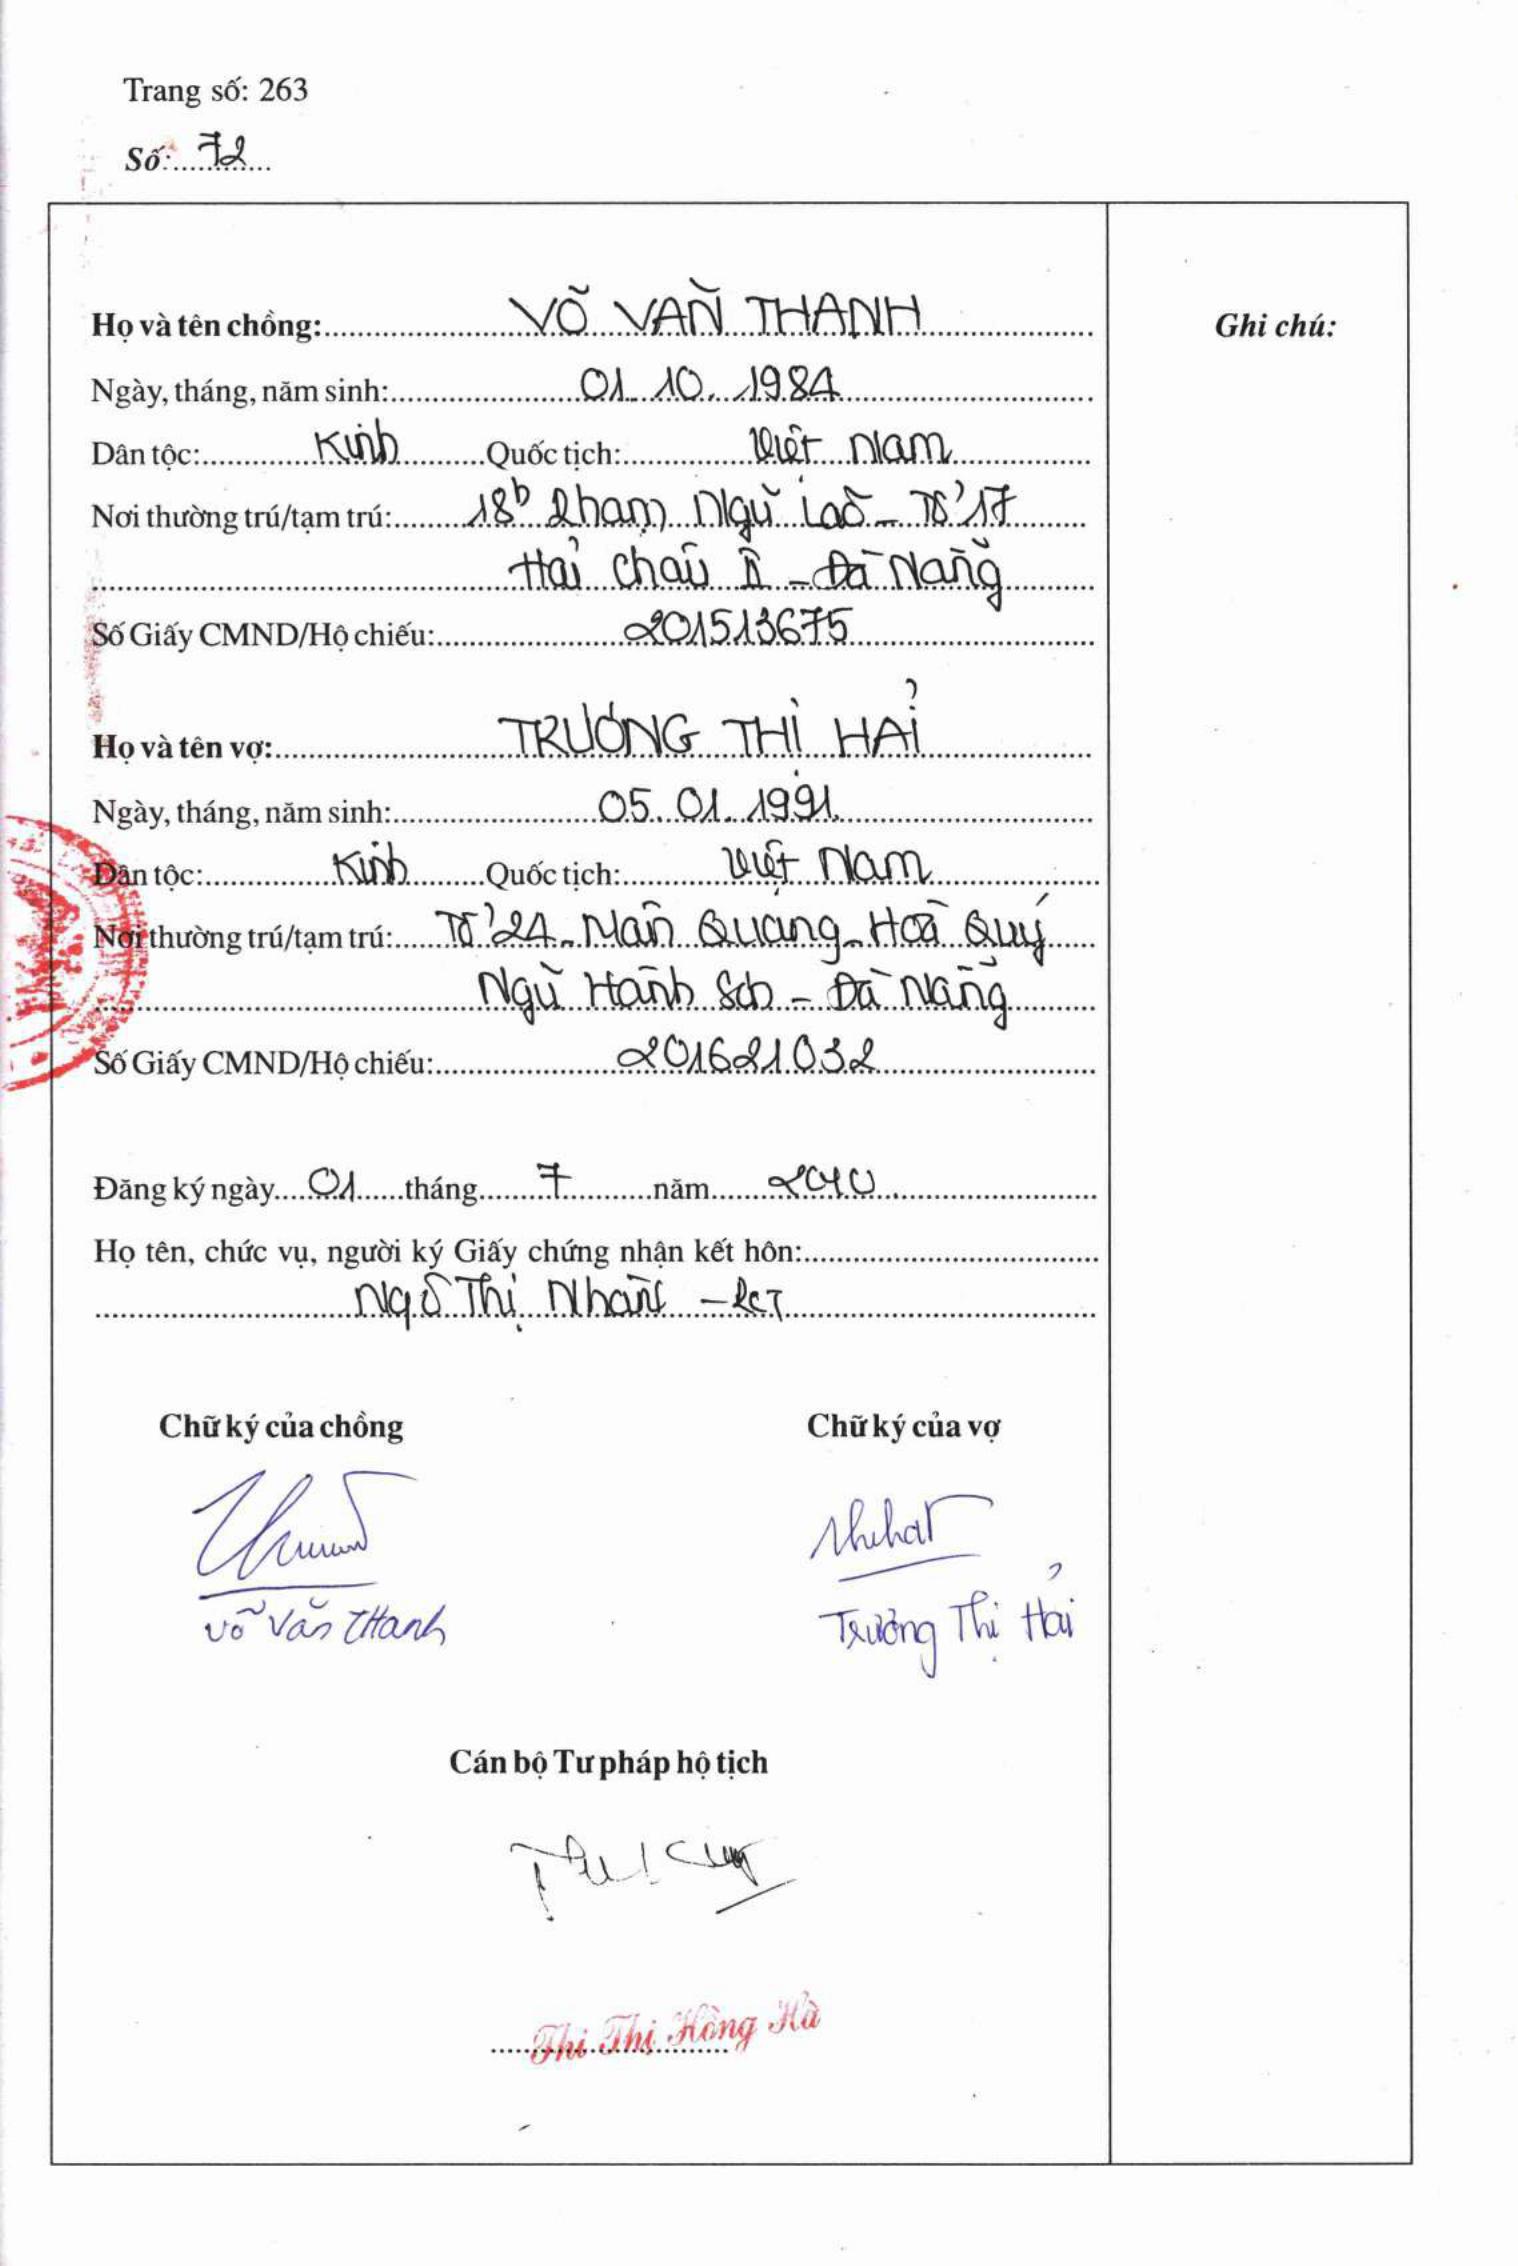 Trang số: 263
Số: 72
Họ và tên chồng: VÕ VĂN THANH
Ghi chú:
Ngày, tháng, năm sinh: 01.10.1984
Dân tộc: Kinh Quốc tịch: Việt Nam
Nơi thường trú/tạm trú: 18b Phạm Ngũ Lão - Tổ 17
Hải Châu II - Đà Nẵng
Số Giấy CMND/Hộ chiếu: 201513675
Họ và tên vợ: TRƯƠNG THỊ HẢI
Ngày, tháng, năm sinh: 05.01.1991
Dân tộc: Kinh Quốc tịch: Việt Nam
Nơi thường trú/tạm trú: Tổ 24 - Mân Quang - Hoà Quý
Ngũ Hành Sơn - Đà Nẵng
Số Giấy CMND/Hộ chiếu: 201621032
Đăng ký ngày 01 tháng 7 năm 2010
Họ tên, chức vụ, người ký Giấy chứng nhận kết hôn:
Ngô Thị Nhàn - PCT
Chữ ký của chồng Chữ ký của vợ
Võ Văn Thanh Trương Thị Hải
Cán bộ Tư pháp hộ tịch
Thi Thị Hồng Hà